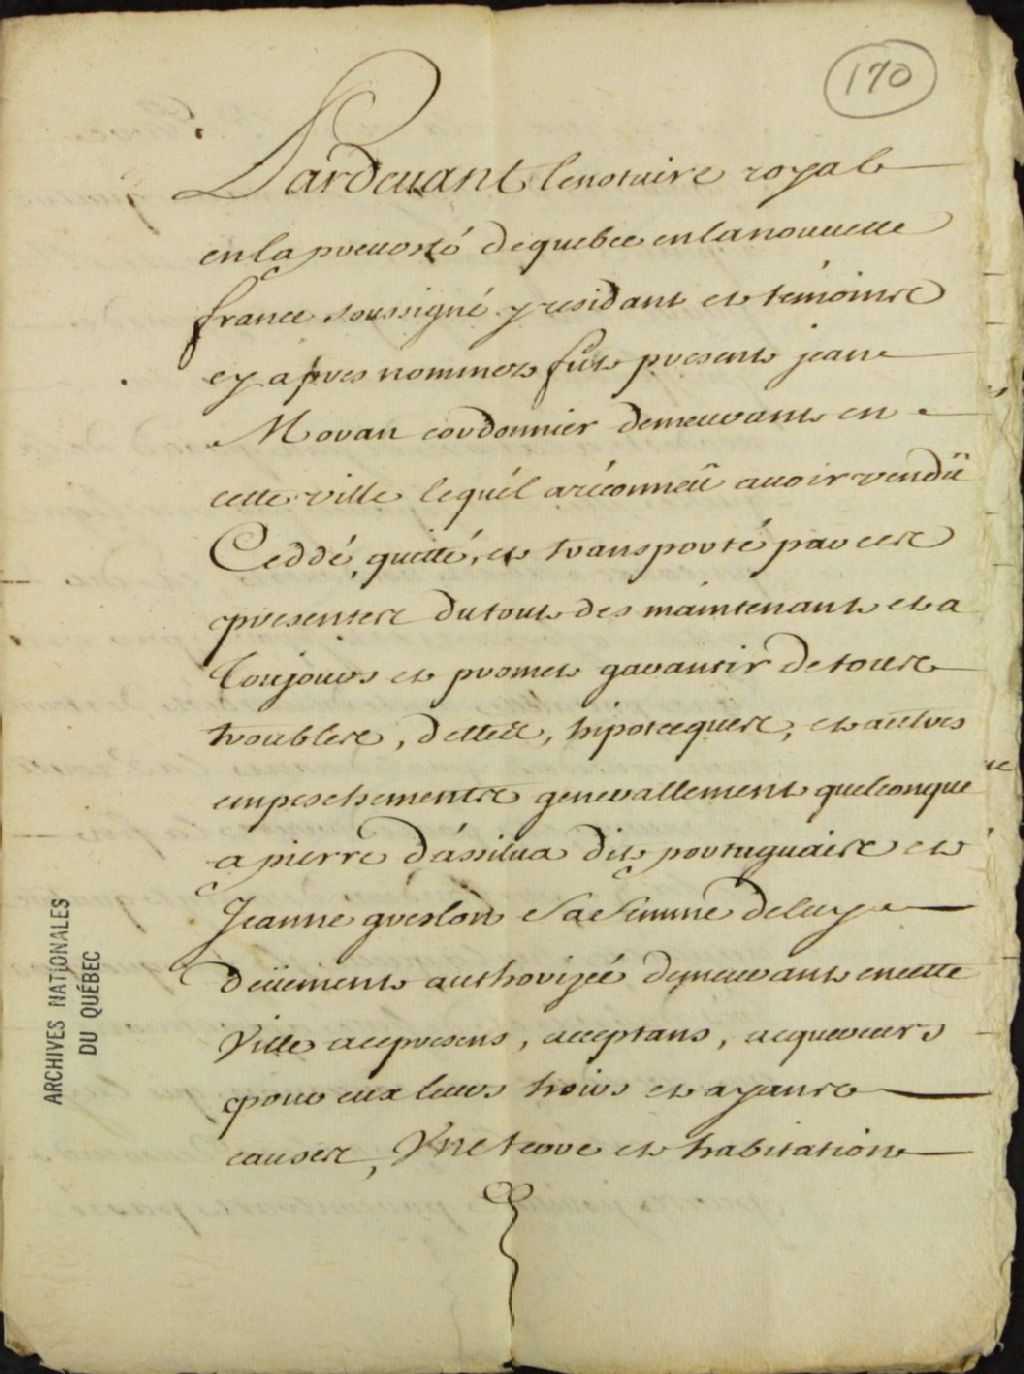 170
Pardeuant le notaire royal
en la preuosté de quebec en la nouuelle
france soussigné y residant et témoins
cy apres nommez fut present jean
Moran cordonnier demeurant en
cette ville lequél a réconneû auoir vendü
Ceddé, quitté, et transporté par ces
presentes du tout des maintenant et a
Toujours et promet garantir de tous
troubles, dettes, hipotecques, et autres
empeschements generallement quelconque
a pierre dássilua dit portuguais et
Jeanne greslon sa femme de luy
deüement authorizée demeurant en cette
Ville a ce presens, acceptans, acquereurs
pour eux leurs hoirs et ayans
causes, Vne terre et habitation
ARCHIVES NATIONALES
DU QUÉBEC